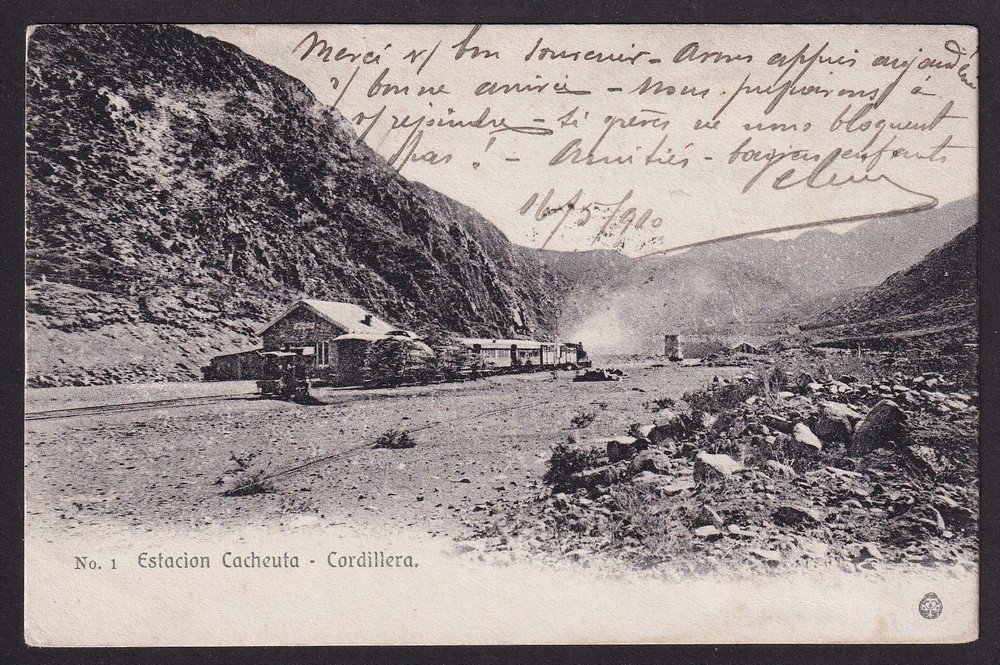 Merci & bon souvenir - Avons appris aujourd'hui
& bonne arrivée - Nous préparons à
& rejoindre - Si grèves ne nous bloquent
pas ! - Amitiés - enfants
16/5/910
No. 1 Estacion Cacheuta - Cordillera.